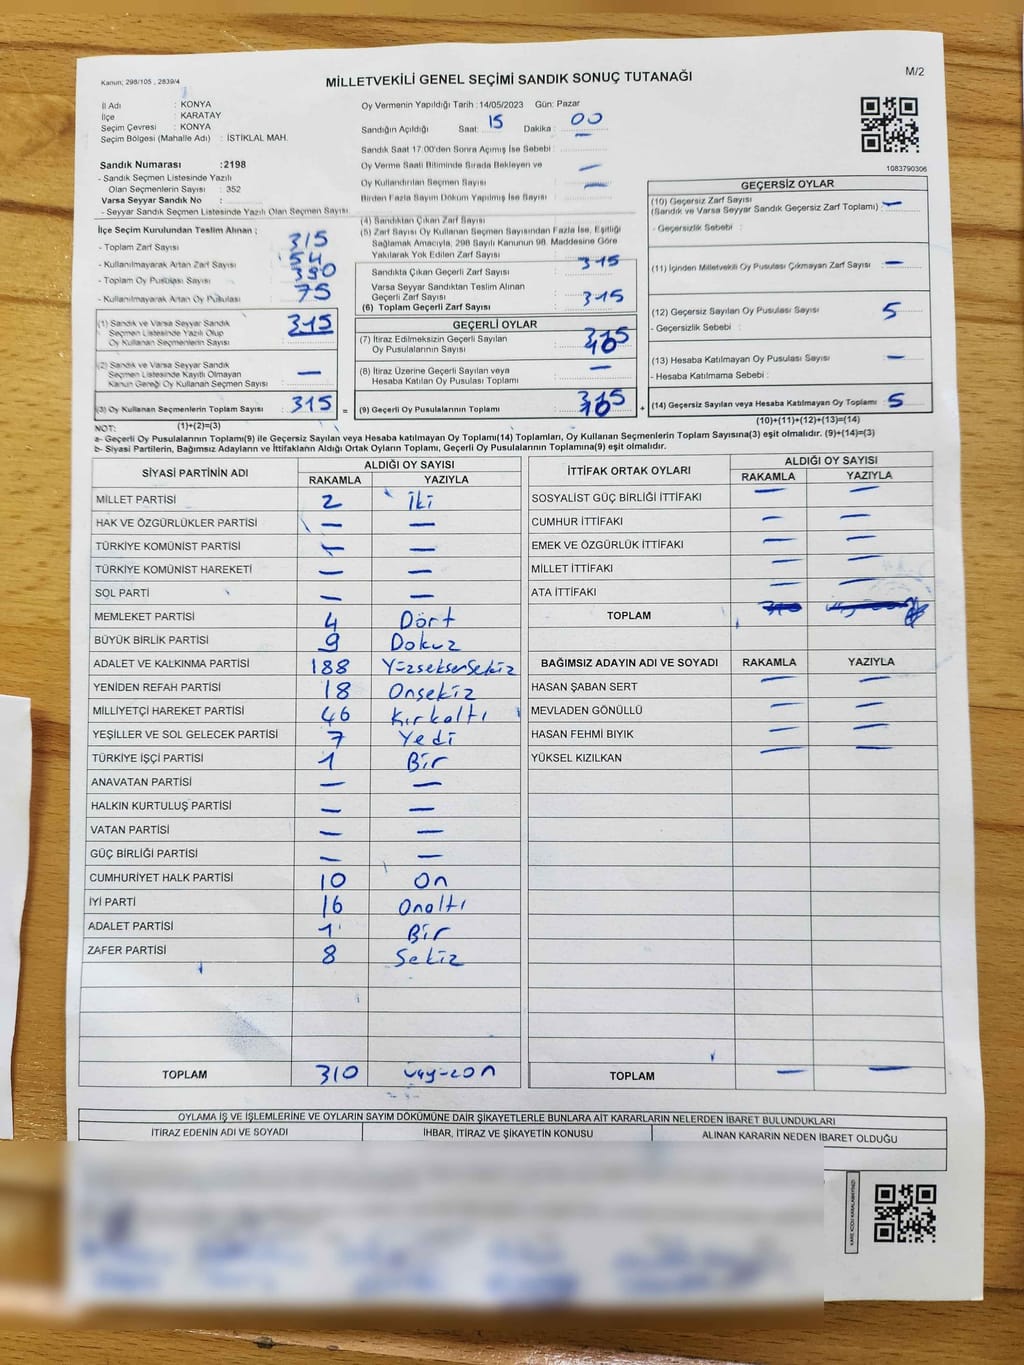 Kanun; 298/105 , 2839/4
MİLLETVEKİLİ GENEL SEÇİMİ SANDIK SONUÇ TUTANAĞI
M/2
İl Adı : KONYA
İlçe : KARATAY
Seçim Çevresi : KONYA
Seçim Bölgesi (Mahalle Adı) : İSTİKLAL MAH.
Sandık Numarası :2198
- Sandık Seçmen Listesinde Yazılı
Olan Seçmenlerin Sayısı : 352
Varsa Seyyar Sandık No :
- Seyyar Sandık Seçmen Listesinde Yazılı Olan Seçmen Sayısı
Oy Vermenin Yapıldığı Tarih : 14/05/2023 Gün: Pazar
Sandığın Açıldığı Saat: 15 Dakika : 00
Sandık Saat 17.00'den Sonra Açılmış İse Sebebi : —
Oy Verme Saati Bitiminde Sırada Bekleyen ve
Oy Kullandırılan Seçmen Sayısı —
Birden Fazla Sayım Döküm Yapılmış İse Sayısı : —
1083790306
İlçe Seçim Kurulundan Teslim Alınan ;
- Toplam Zarf Sayısı 315
- Kullanılmayarak Artan Zarf Sayısı 54
- Toplam Oy Pusulası Sayısı 390
- Kullanılmayarak Artan Oy Pusulası 75
(1) Sandık ve Varsa Seyyar Sandık
Seçmen Listesinde Yazılı Olup
Oy Kullanan Seçmenlerin Sayısı : 315
(2) Sandık ve Varsa Seyyar Sandık
Seçmen Listesinde Kayıtlı Olmayan
Kanun Gereği Oy Kullanan Seçmen Sayısı : —
(3) Oy Kullanan Seçmenlerin Toplam Sayısı : 315 =
(1)+(2)=(3)
(4) Sandıktan Çıkan Zarf Sayısı :
(5) Zarf Sayısı Oy Kullanan Seçmen Sayısından Fazla İse, Eşitliği
Sağlamak Amacıyla, 298 Sayılı Kanunun 98. Maddesine Göre
Yakılarak Yok Edilen Zarf Sayısı :
Sandıkta Çıkan Geçerli Zarf Sayısı : 315
Varsa Seyyar Sandıktan Teslim Alınan
Geçerli Zarf Sayısı
(6) Toplam Geçerli Zarf Sayısı : 315
GEÇERLİ OYLAR
(7) İtiraz Edilmeksizin Geçerli Sayılan
Oy Pusulalarının Sayısı :
(8) İtiraz Üzerine Geçerli Sayılan veya
Hesaba Katılan Oy Pusulası Toplamı : —
(9) Geçerli Oy Pusulalarının Toplamı : +
GEÇERSİZ OYLAR
(10) Geçersiz Zarf Sayısı
(Sandık ve Varsa Seyyar Sandık Geçersiz Zarf Toplamı) : —
- Geçersizlik Sebebi :
(11) İçinden Milletvekili Oy Pusulası Çıkmayan Zarf Sayısı : —
(12) Geçersiz Sayılan Oy Pusulası Sayısı : 5
- Geçersizlik Sebebi :
(13) Hesaba Katılmayan Oy Pusulası Sayısı : —
- Hesaba Katılmama Sebebi :
(14) Geçersiz Sayılan veya Hesaba Katılmayan Oy Toplamı : 5
(10)+(11)+(12)+(13)=(14)
NOT:
a- Geçerli Oy Pusulalarının Toplamı(9) ile Geçersiz Sayılan veya Hesaba katılmayan Oy Toplamı(14) Toplamları, Oy Kullanan Seçmenlerin Toplam Sayısına(3) eşit olmalıdır. (9)+(14)=(3)
b- Siyasi Partilerin, Bağımsız Adayların ve İttifakların Aldığı Ortak Oyların Toplamı, Geçerli Oy Pusulalarının Toplamına(9) eşit olmalıdır.
SİYASİ PARTİNİN ADI ALDIĞI OY SAYISI
RAKAMLA YAZIYLA
MİLLET PARTİSİ 2 İki
HAK VE ÖZGÜRLÜKLER PARTİSİ — —
TÜRKİYE KOMÜNİST PARTİSİ — —
TÜRKİYE KOMÜNİST HAREKETİ — —
SOL PARTİ — —
MEMLEKET PARTİSİ 4 Dört
BÜYÜK BİRLİK PARTİSİ 9 Dokuz
ADALET VE KALKINMA PARTİSİ 188 YüzseksenSekiz
YENİDEN REFAH PARTİSİ 18 Onsekiz
MİLLİYETÇİ HAREKET PARTİSİ 46 Kırkaltı
YEŞİLLER VE SOL GELECEK PARTİSİ 7 Yedi
TÜRKİYE İŞÇİ PARTİSİ 1 Bir
ANAVATAN PARTİSİ — —
HALKIN KURTULUŞ PARTİSİ — —
VATAN PARTİSİ — —
GÜÇ BİRLİĞİ PARTİSİ — —
CUMHURİYET HALK PARTİSİ 10 On
İYİ PARTİ 16 Onaltı
ADALET PARTİSİ 1 Bir
ZAFER PARTİSİ 8 Sekiz
TOPLAM 310 üçyüzon
İTTİFAK ORTAK OYLARI ALDIĞI OY SAYISI
RAKAMLA YAZIYLA
SOSYALİST GÜÇ BİRLİĞİ İTTİFAKI — —
CUMHUR İTTİFAKI — —
EMEK VE ÖZGÜRLÜK İTTİFAKI — —
MİLLET İTTİFAKI — —
ATA İTTİFAKI — —
TOPLAM
BAĞIMSIZ ADAYIN ADI VE SOYADI RAKAMLA YAZIYLA
HASAN ŞABAN SERT — —
MEVLADEN GÖNÜLLÜ — —
HASAN FEHMİ BIYIK — —
YÜKSEL KIZILKAN — —
TOPLAM — —
OYLAMA İŞ VE İŞLEMLERİNE VE OYLARIN SAYIM DÖKÜMÜNE DAİR ŞİKAYETLERLE BUNLARA AİT KARARLARIN NELERDEN İBARET BULUNDUKLARI
İTİRAZ EDENİN ADI VE SOYADI İHBAR, İTİRAZ VE ŞİKAYETİN KONUSU ALINAN KARARIN NEDEN İBARET OLDUĞU